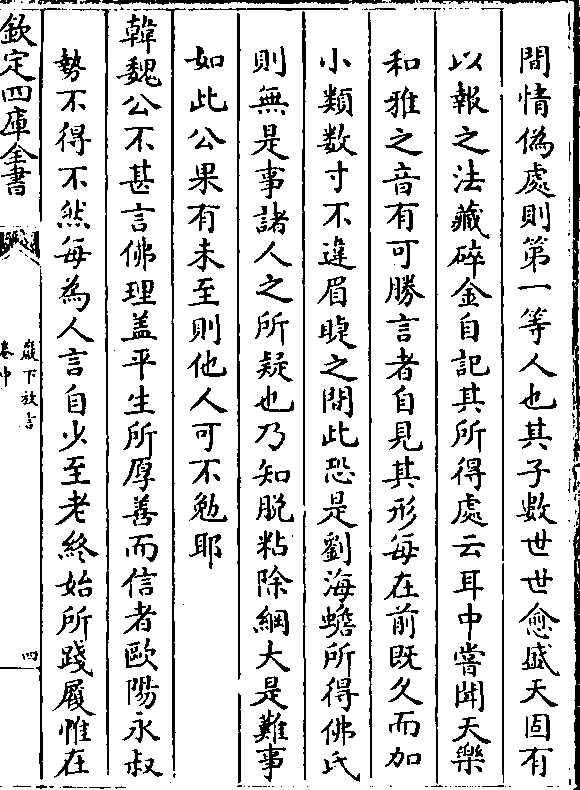 間情偽處則第一等人也其子數世世愈盛天固有
以報之法藏碎金自記其所得處云耳中嘗聞天樂
和雅之音有可勝言者自見其形每在前既久而加
小類数寸不違眉睫之間此恐是劉海蟾所得佛氏
則無是事諸人之所疑也乃知脱粘除綱大是難事
如此公果有未至則他人可不勉耶
韓魏公不甚言佛理盖平生所厚善而信者歐陽永叔
勢不得不然每為人言自少至老終始所踐履惟在
欽定四庫全書
巖下放言
卷中
四